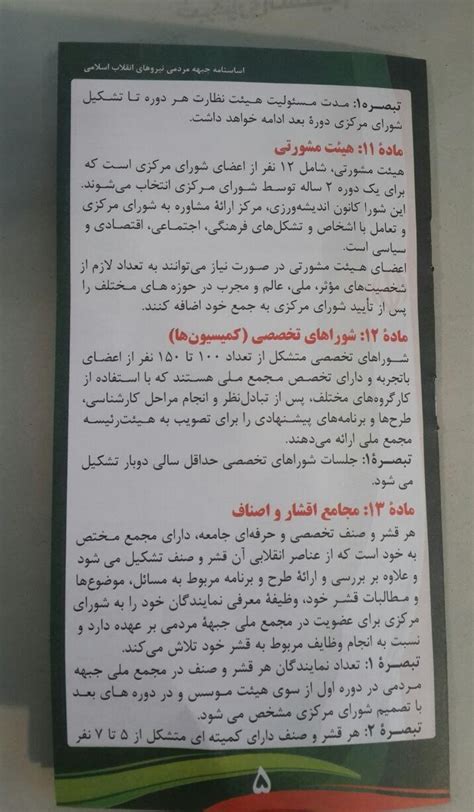 اساسنامه جبهه مردمی نیروهای انقلاب اسلامی
تبصره۱: مدت مسئولیت هیئت نظارت هر دوره تا تشکیل
شورای مرکزی دورهٔ بعد ادامه خواهد داشت.
مادهٔ ۱۱: هیئت مشورتی
هیئت مشورتی، شامل ۱۲ نفر از اعضای شورای مرکزی است که
برای یک دوره ۲ ساله توسط شورای مرکزی انتخاب می‌شوند.
این شورا کانون اندیشه‌ورزی، مرکز ارائهٔ مشاوره به شورای مرکزی
و تعامل با اشخاص و تشکل‌های فرهنگی، اجتماعی، اقتصادی و
سیاسی است.
اعضای هیئت مشورتی در صورت نیاز می‌توانند به تعداد لازم از
شخصیت‌های مؤثر، ملی، عالم و مجرب در حوزه های مختلف را
پس از تأیید شورای مرکزی به جمع خود اضافه کنند.
مادهٔ ۱۲: شوراهای تخصصی (کمیسیون‌ها)
شوراهای تخصصی متشکل از تعداد ۱۰۰ تا ۱۵۰ نفر از اعضای
باتجربه و دارای تخصص مجمع ملی هستند که با استفاده از
کارگروه‌های مختلف، پس از تبادل‌نظر و انجام مراحل کارشناسی،
طرح‌ها و برنامه‌های پیشنهادی را برای تصویب به هیئت‌رئیسه
مجمع ملی ارائه می‌دهند.
تبصرهٔ۱: جلسات شوراهای تخصصی حداقل سالی دوبار تشکیل
می شود.
مادهٔ ۱۳: مجامع اقشار و اصناف
هر قشر و صنف تخصصی و حرفه‌ای جامعه، دارای مجمع مختص
به خود است که از عناصر انقلابی آن قشر و صنف تشکیل می شود
و علاوه بر بررسی و ارائهٔ طرح و برنامه مربوط به مسائل، موضوع‌ها
و مطالبات قشر خود، وظیفهٔ معرفی نمایندگان خود را به شورای
مرکزی برای عضویت در مجمع ملی جبههٔ مردمی بر عهده دارد و
نسبت به انجام وظایف مربوط به قشر خود تلاش می‌کند.
تبصرهٔ ۱: تعداد نمایندگان هر قشر و صنف در مجمع ملی جبهه
مردمی در دوره اول از سوی هیئت موسس و در دوره های بعد
با تصمیم شورای مرکزی مشخص می شود.
تبصرهٔ ۲: هر قشر و صنف دارای کمیته ای متشکل از ۵ تا ۷ نفر
۵